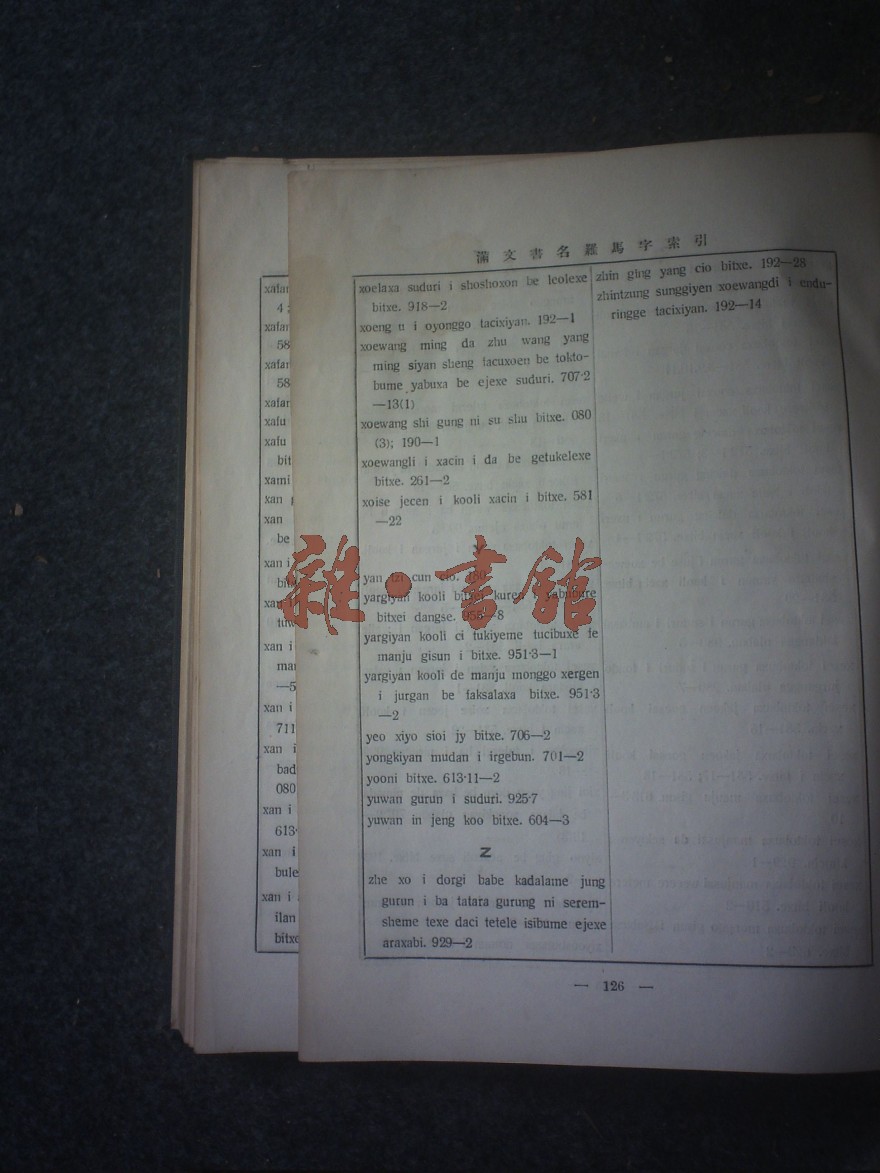 滿文書名羅馬字索引
xafan
4;
xafan
58
xafan
58
xafan
xafu
xafu
bit
xami
xan
xan
be
xan i
xan i
xan i
—5
xan i
711
xan i
bad
080
xan i
613·
xan i
bule
xan i
ilan
bitxe
xoelaxa suduri i shoshoxon be leolexe
bitxe. 918—2
xoeng u i oyonggo tacixiyan. 192—1
xoewang ming da zhu wang yang
ming siyan sheng tacuxoen be tokto-
bume yabuxa be ejexe suduri. 707·2
—13(1)
xoewang shi gung ni su shu bitxe. 080
(3); 190—1
xoewangli i xacin i da be getukelexe
bitxe. 261—2
xoise jecen i kooli xacin i bitxe. 581
—22
Y
yan tzi cun cio.
yargiyan kooli bitxei kuren i yabubure
bitxei dangse. 955—8
yargiyan kooli ci tukiyeme tucibuxe fe
manju gisun i bitxe. 951·3—1
yargiyan kooli de manju monggo xergen
i jurgan be faksalaxa bitxe. 951·3
—2
yeo xiyo sioi jy bitxe. 706—2
yongkiyan mudan i irgebun. 701—2
yooni bitxe. 613·11—2
yuwan gurun i suduri. 925·7
yuwan in jeng koo bitxe. 604—3
Z
zhe xo i dorgi babe kadalame jung
gurun i ba tatara gurung ni serem-
sheme texe daci tetele isibume ejexe
araxabi. 929—2
zhin ging yang cio bitxe. 192—28
zhintzung sunggiyen xoewangdi i endu-
ringge tacixiyan. 192—14
— 126 —
雜·書館